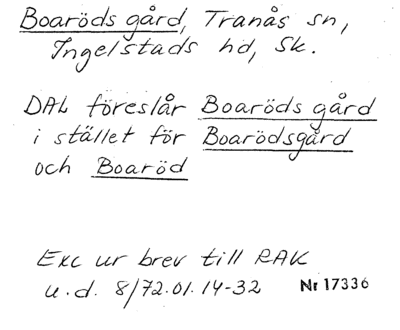 Boaröds gård, Tranås sn,
Ingelstads hd, Sk.
DAL föreslår Boaröds gård
i stället för Boarödsgård
och Boaröd
Exc ur brev till RAK
u.d. 8/72.01.14-32 Nr 17336